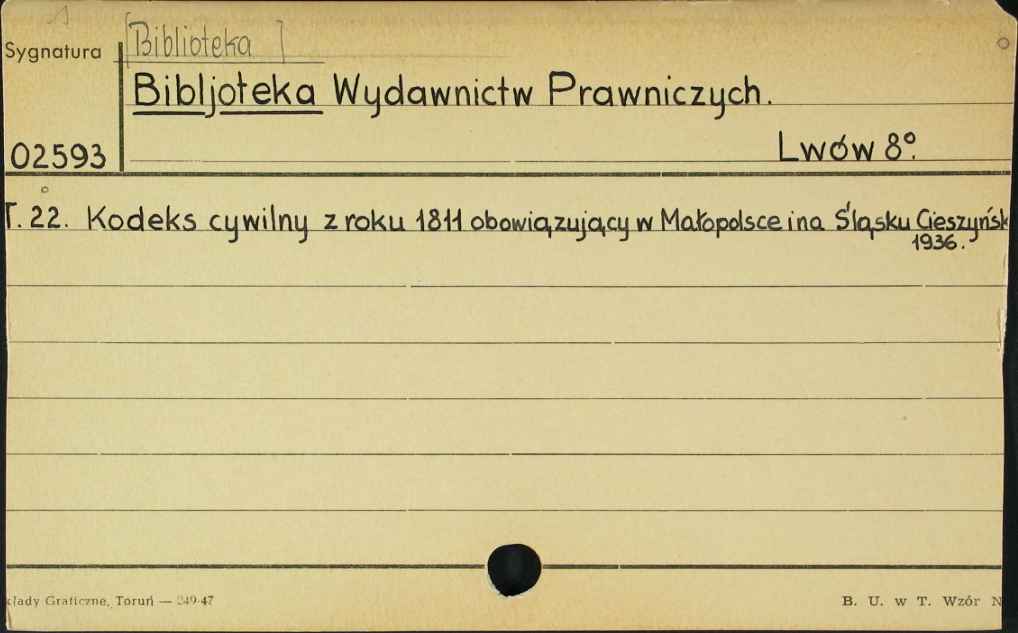 [Biblioteka]
Sygnatura
Bibljoteka Wydawnictw Prawniczych.
02593
Lwów 8º.
T. 22. Kodeks cywilny z roku 1811 obowiązujący w Małopolsce i na Śląsku Cieszyńsk
1936.
kłady Graficzne, Toruń — 249-47
B. U. w T. Wzór N